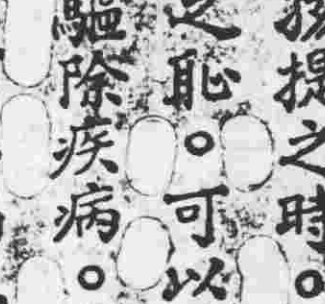 提之時。
之恥。可以
驅除疾病。